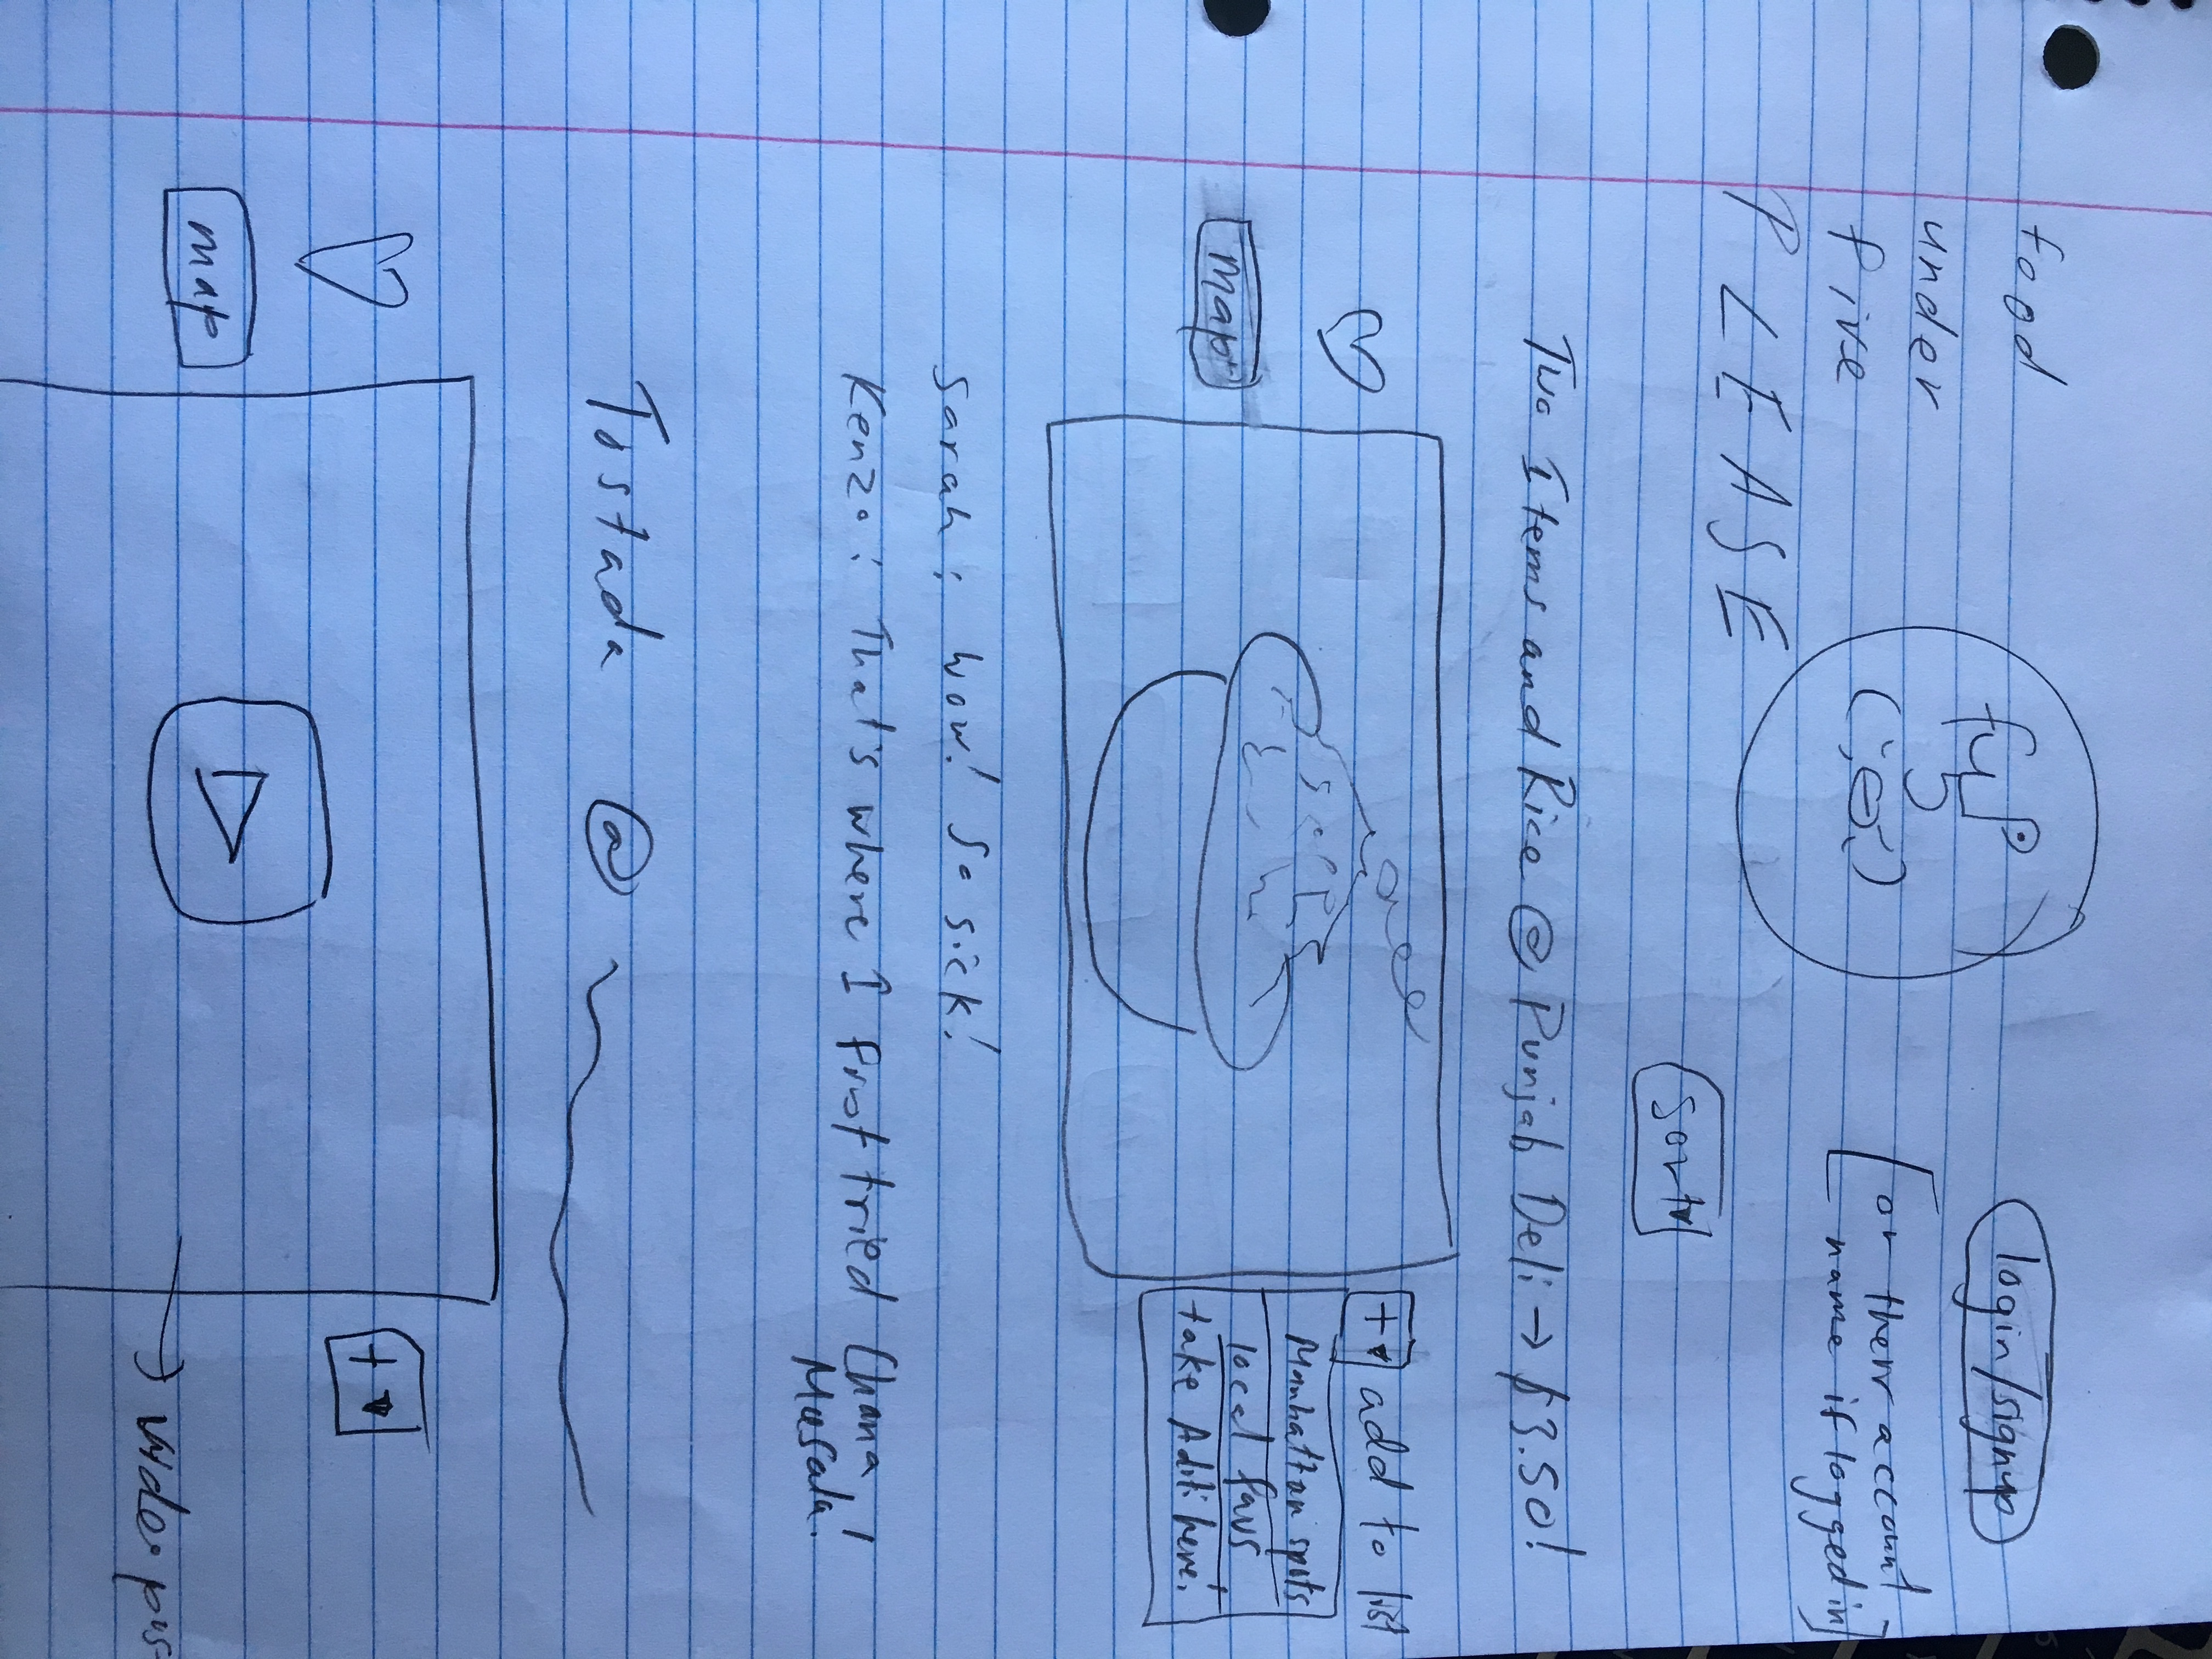 food
under
five
PLEASE
fyp
login/signup
[or there account
name if logged in]
Sort
Two Items and Rice @ Punjab Deli → $3.50!
+ add to list
Manhattan spots
local favs
take Aditi here.
Map
Sarah: Wow! So sick!
Kenzo: That's where I first tried Chana
Masala!
Tostada @
+
map
→ video pos